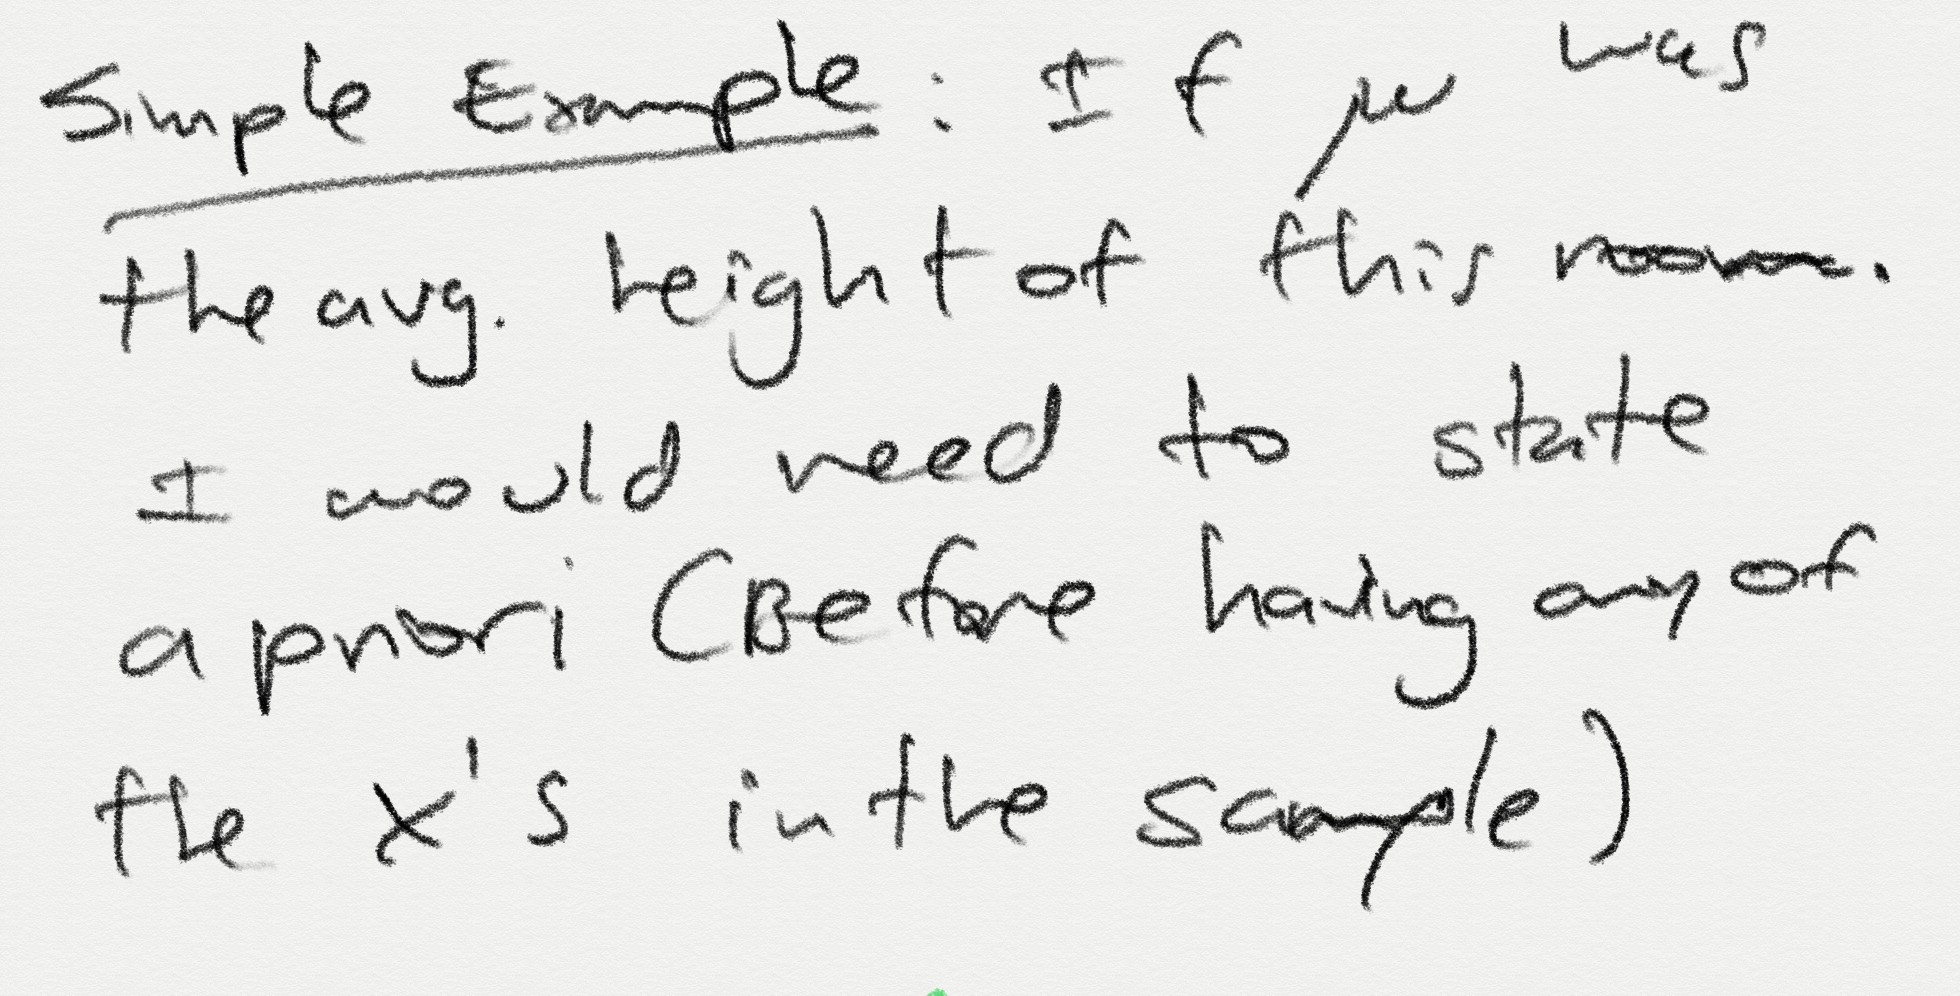 Simple Example: If μ was
the avg. height of this room.
I would need to state
a priori (Before having any of
the x's in the sample)